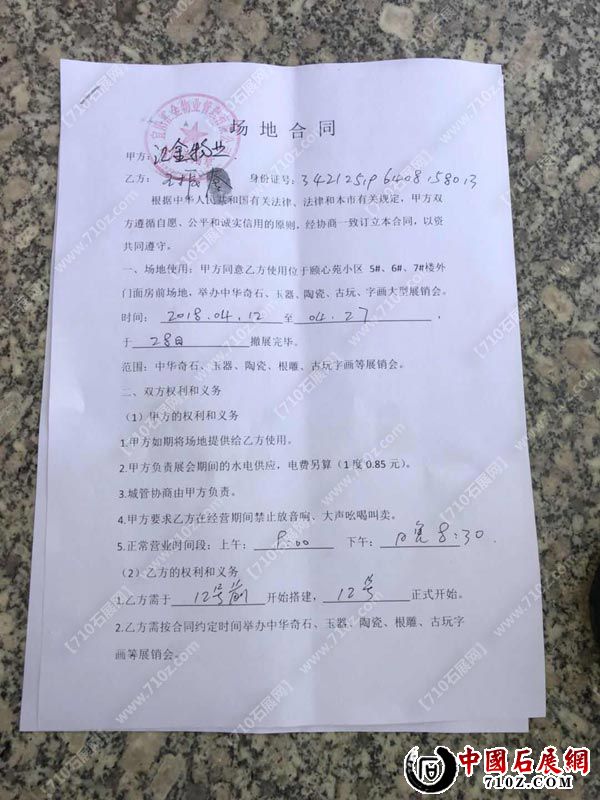 场地合同
甲方：汇金物业
乙方： 身份证号：
根据中华人民共和国有关法律、法律和本市有关规定，甲方双
方遵循自愿、公平和诚实信用的原则，经协商一致订立本合同，以资
共同遵守。
一、场地使用：甲方同意乙方使用位于颐心苑小区 5#、6#、7#楼外
门面房前场地，举办中华奇石、玉器、陶瓷、古玩、字画大型展销会。
时间： 2018.04.12 至 04.27 ，
于 28日 撤展完毕。
范围：中华奇石、玉器、陶瓷、根雕、古玩字画等展销会。
二、双方权利和义务
（1）甲方的权利和义务
1.甲方如期将场地提供给乙方使用。
2.甲方负责展会期间的水电供应，电费另算（1度0.85元）。
3.城管协商由甲方负责。
4.甲方要求乙方在经营期间禁止放音响、大声吆喝叫卖。
5.正常营业时间段：上午： 8:00 下午： 8:30 .
（2）乙方的权利和义务
1.乙方需于 12号前 开始搭建， 12号 正式开始。
2.乙方需按合同约定时间举办中华奇石、玉器、陶瓷、根雕、古玩字
画等展销会。
【710石展网】
www.710z.com
中國石展網
710Z.COM